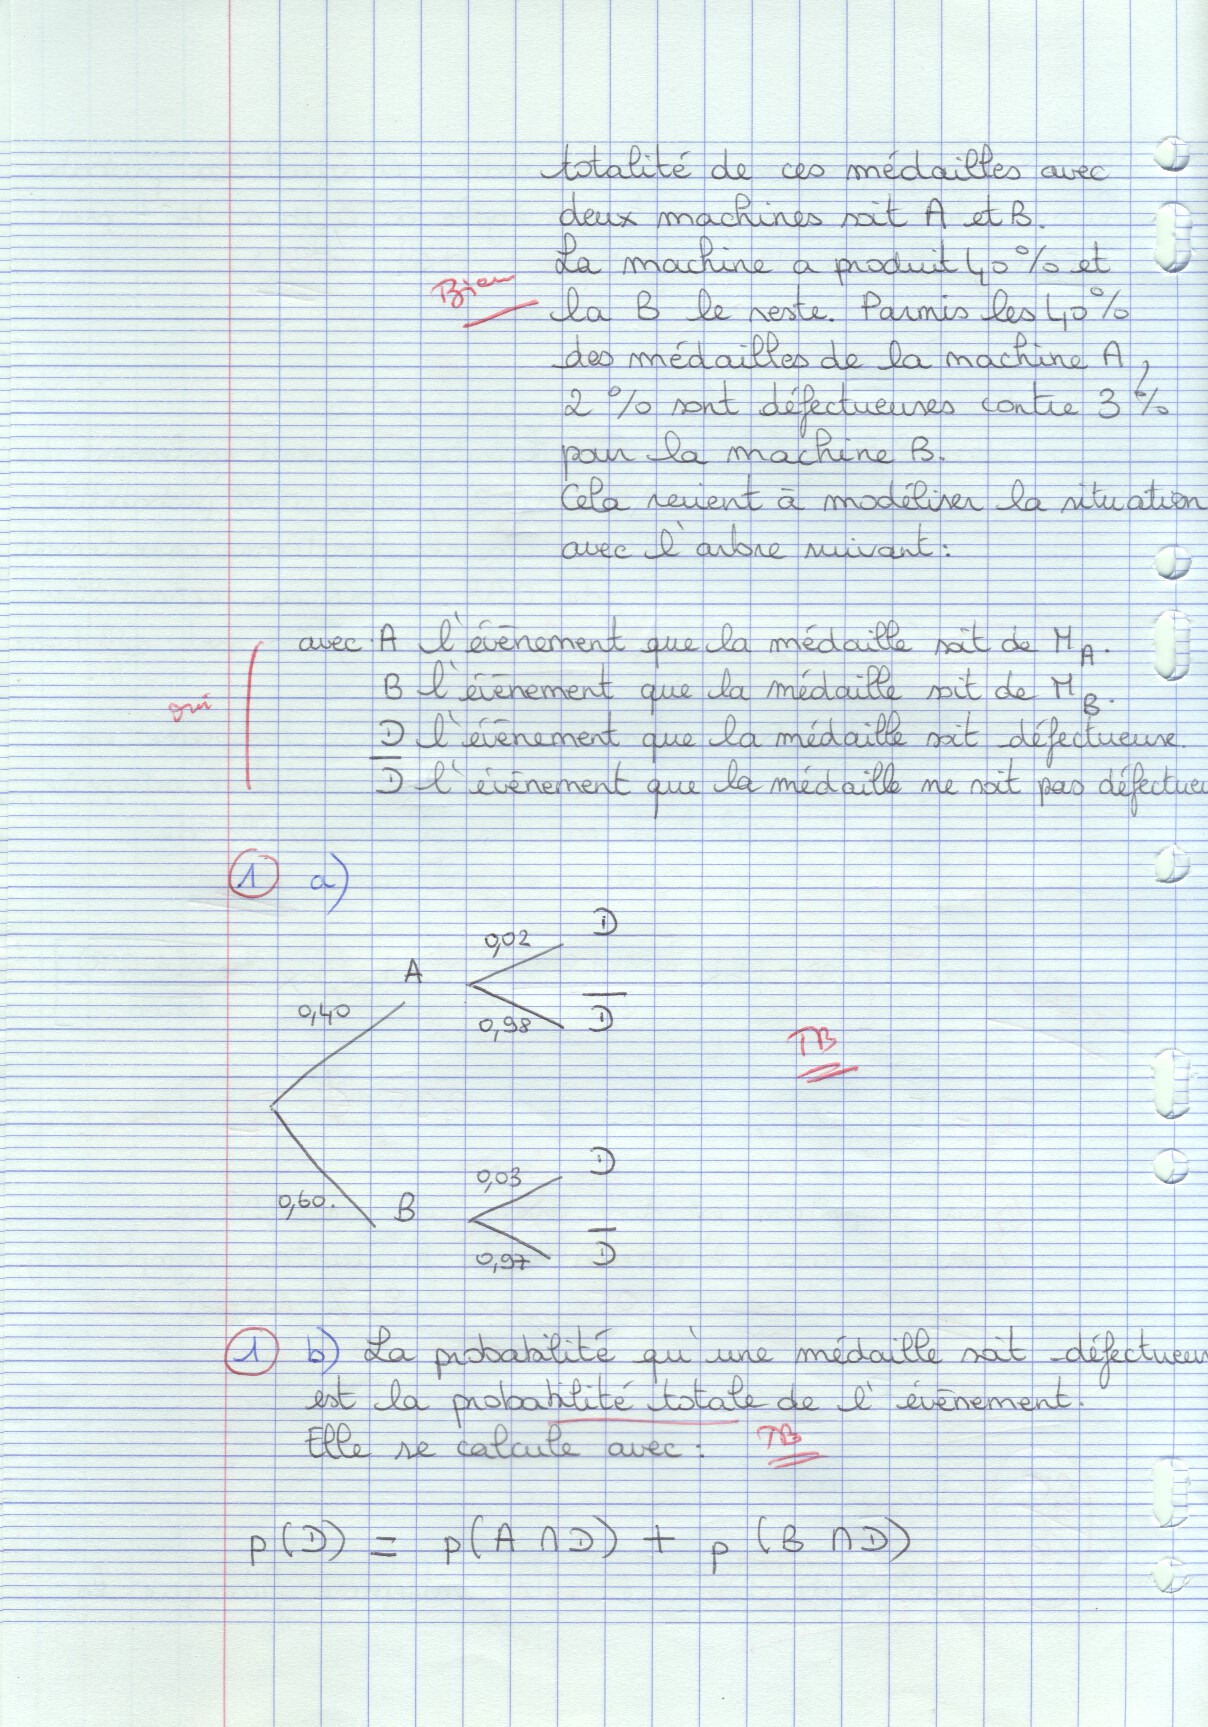 totalité de ces médailles avec
deux machines soit A et B.
La machine a produit 40 % et
Bien
la B le reste. Parmis les 40 %
des médailles de la machine A,
2 % sont défectueuses contre 3 %
pour la machine B.
Cela revient à modéliser la situation
avec l'arbre suivant :
avec A l'évènement que la médaille soit de M_A.
B l'évènement que la médaille soit de M_B.
oui
D l'évènement que la médaille soit défectueuse.
D̅ l'évènement que la médaille ne soit pas défectue
1 a)
0,02 D
A
0,40
0,98 D̅
TB
0,03 D
0,60. B
0,97 D̅
1 b) La probabilité qu'une médaille soit défectueu
est la probabilité totale de l'évènement.
Elle se calcule avec : TB
p(D) = p(A ∩ D) + p(B ∩ D)